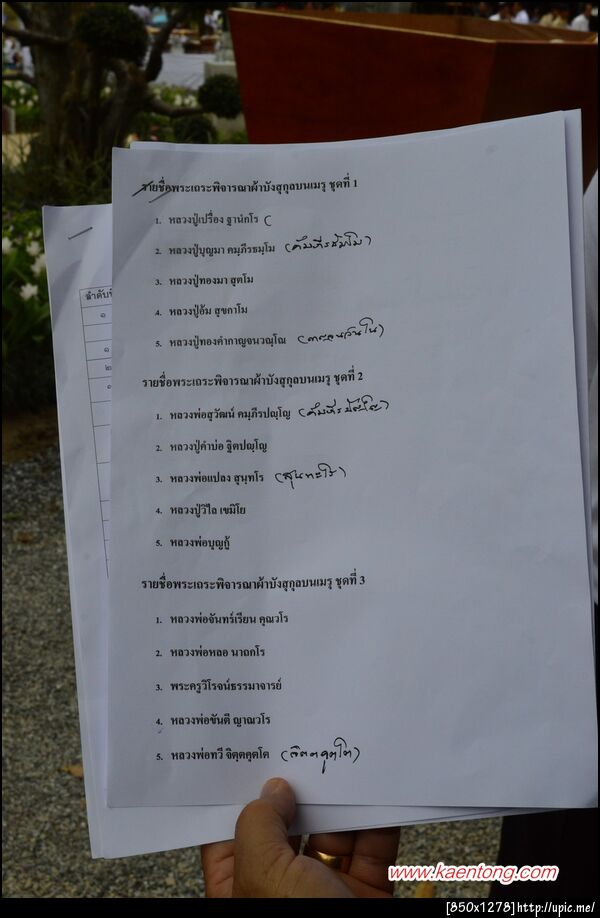 รายชื่อพระเถระพิจารณาผ้าบังสุกุลบนเมรุ ชุดที่ 1
1. หลวงปู่เปรื่อง ฐานงฺกโร (
2. หลวงปู่บุญมา คมฺภีรธมฺโม (คัมภีรธัมโม)
3. หลวงปู่ทองมา สุตโม
4. หลวงปู่อ้ม สุขกาโม
5. หลวงปู่ทองคำกาญจนวณฺโณ
รายชื่อพระเถระพิจารณาผ้าบังสุกุลบนเมรุ ชุดที่ 2
1. หลวงพ่อสุวัฒน์ คมฺภีรปญฺโญ (คัมภีรปัญโญ)
2. หลวงปู่คำบ่อ ฐิตปญฺโญ
3. หลวงพ่อแปลง สุนฺทโร (สุนทะโร)
4. หลวงปู่วิไล เขมิโย
5. หลวงพ่อบุญกู้
รายชื่อพระเถระพิจารณาผ้าบังสุกุลบนเมรุ ชุดที่ 3
1. หลวงพ่อจันทร์เรียน คุณวโร
2. หลวงพ่อหลอ นาถกโร
3. พระครูวิโรจน์ธรรมาจารย์
4. หลวงพ่อขันตี ญาณวโร
5. หลวงพ่อทวี จิตฺตคุตโต (จิตตคุตโต)
ลำดับที่
๑
๑
๒
๑
www.kaentong.com
[850x1278]http://upic.me/